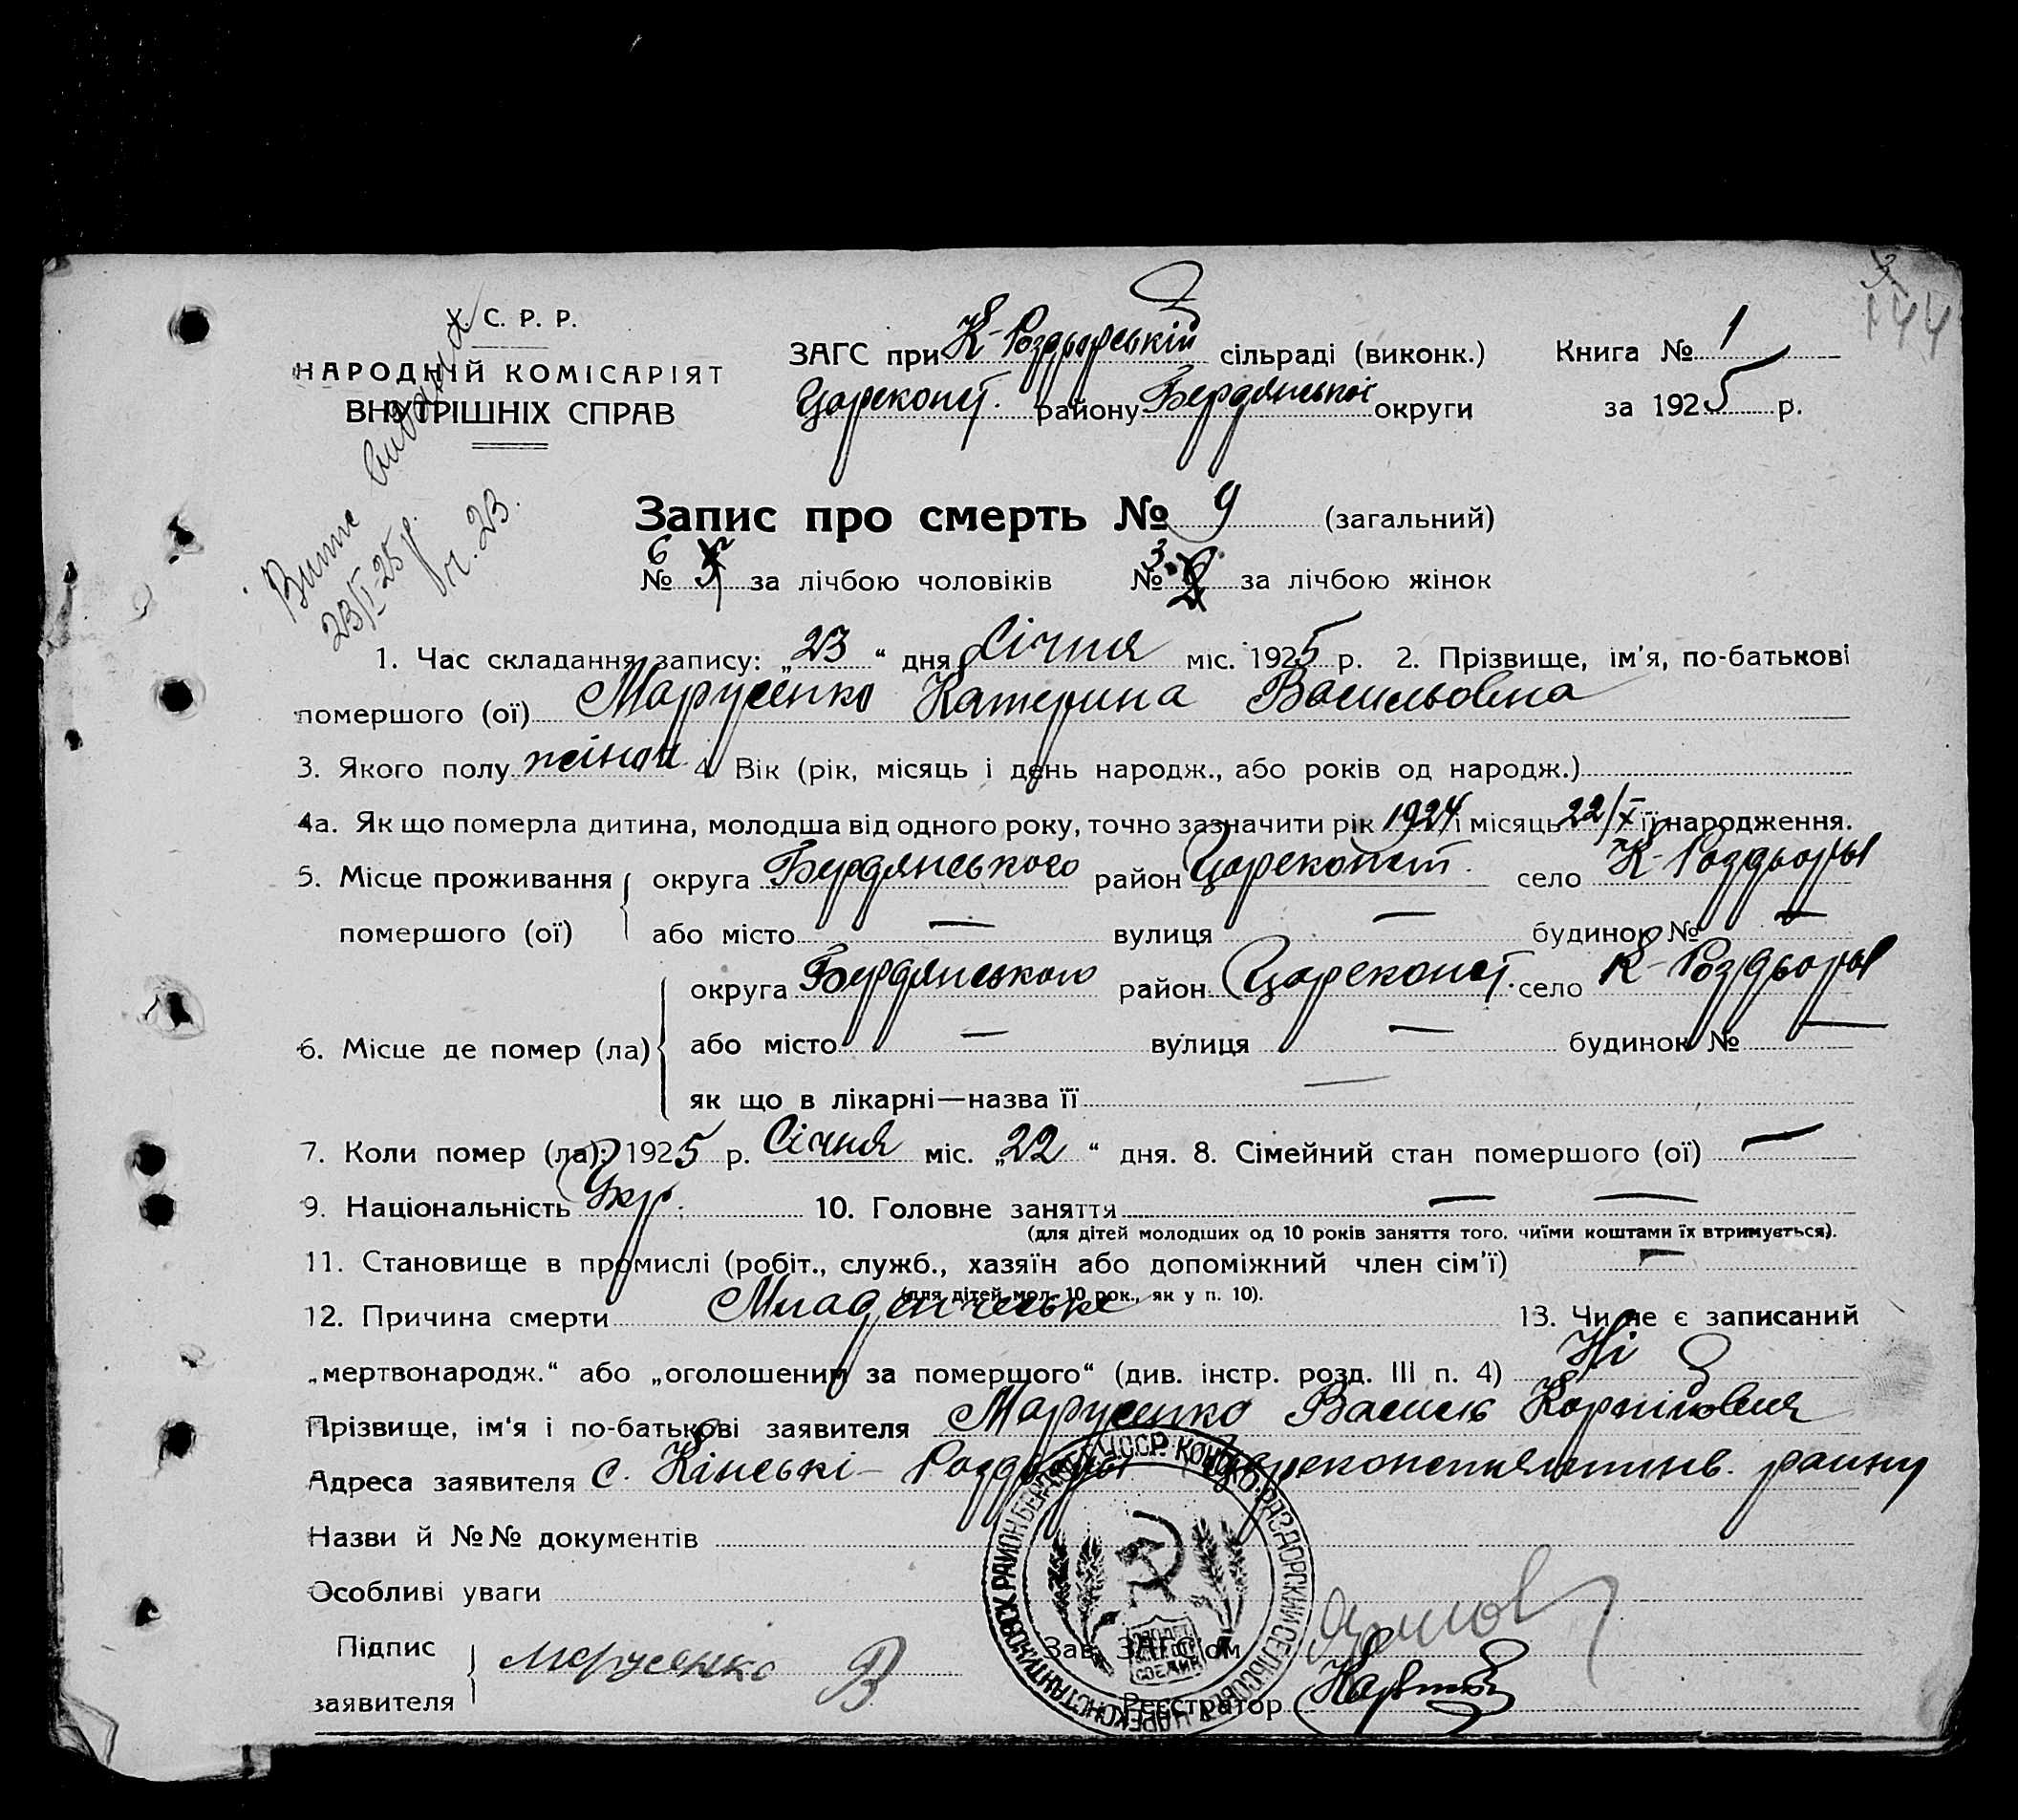 У. С. Р. Р.
НАРОДНІЙ КОМІСАРІЯТ
ВНУТРІШНІХ СПРАВ
ЗАГС при К-Роздорській сільраді (виконк.)
Цареконст. району Бердянської округи
Книга № 1
за 1925 р.
3
144
Витяг видана
23/I-25 р.
№. 23.
Запис про смерть № 9 (загальний)
6 3
№ за лічбою чоловіків № за лічбою жінок
1. Час складання запису: „23“ дня Січня міс. 1925 р. 2. Прізвище, ім'я, по-батькові
помершого (ої) Марусенко Катерина Васильовна
3. Якого полу жіноч. 4. Вік (рік, місяць і день народж., або років од народж.)
4а. Як що померла дитина, молодша від одного року, точно зазначити рік 1924 і місяць 22/X її народження.
5. Місце проживання округа Бердянського район Цареконст. село К-Роздьоры
помершого (ої) або місто — вулиця — будинок № —
округа Бердянського район Цареконст. село К-Роздьоры
6. Місце де помер (ла) або місто — вулиця — будинок № —
як що в лікарні—назва її —
7. Коли помер (ла): 1925 р. Січня міс. „22“ дня. 8. Сімейний стан помершого (ої) —
9. Національність Укр. 10. Головне заняття — —
(для дітей молодших од 10 років заняття того, чиїми коштами їх втримується).
11. Становище в промислі (робіт., служб., хазяїн або допоміжний член сім'ї) —
(для дітей мол. 10 рок., як у п. 10).
12. Причина смерти Младенческе 13. Чи не є записаний
„мертвонародж.“ або „оголошеним за помершого“ (див. інстр. розд. III п. 4) Ні
Прізвище, ім'я і по-батькові заявителя Марусенко Василь Корніловия
Адреса заявителя с. Кінські-Роздьоры Царекон­стянтинів. раину
Назви й №№ документів
Особливі уваги
Підпис
заявителя Марусенко В
Зав. ЗАГС'ом
Реєстратор
У.С.С.Р. КОНСКО-РАЗДОРСКИЙ СЕЛЬСОВЕТ ЦАРЕКОНСТАНТИНОВСК РАЙОН БЕРДЯНСК